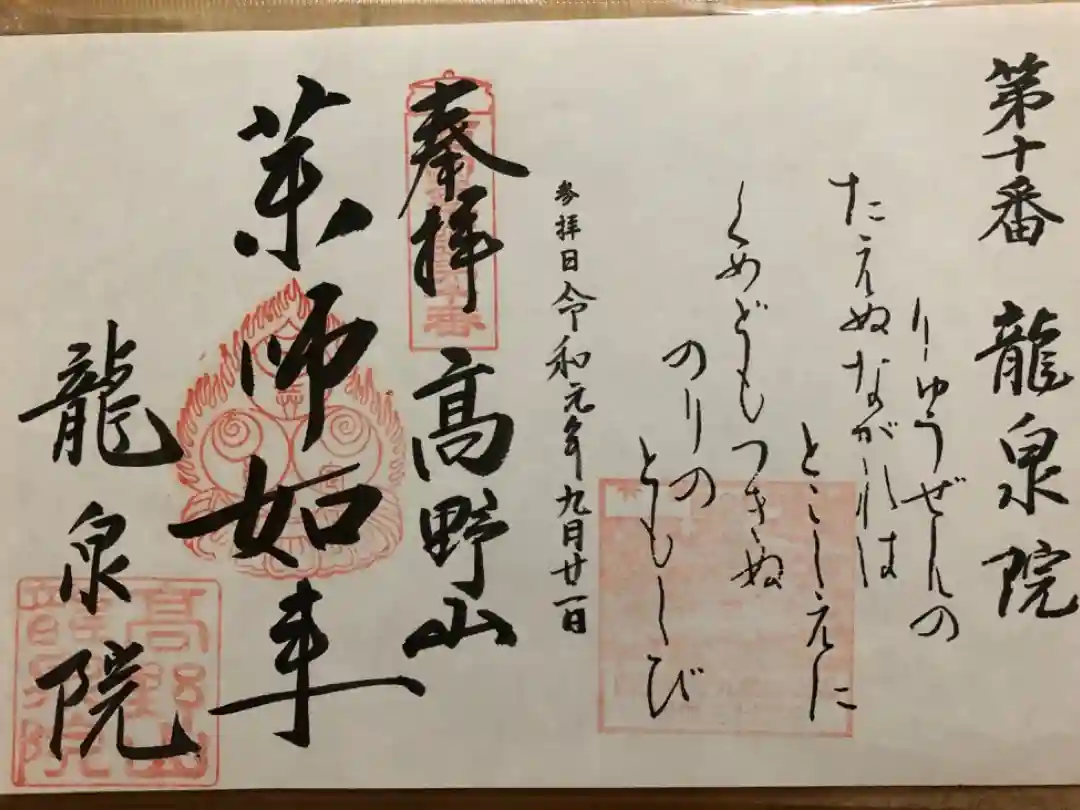 第十番 龍泉院
りゅうぜんの
たえぬながれは
とこしえに
くめどもつきぬ
のりの
ともしび
参拝日令和元年九月廿一日
奉拝 高野山
薬師如来
龍泉院
高野山
龍泉院